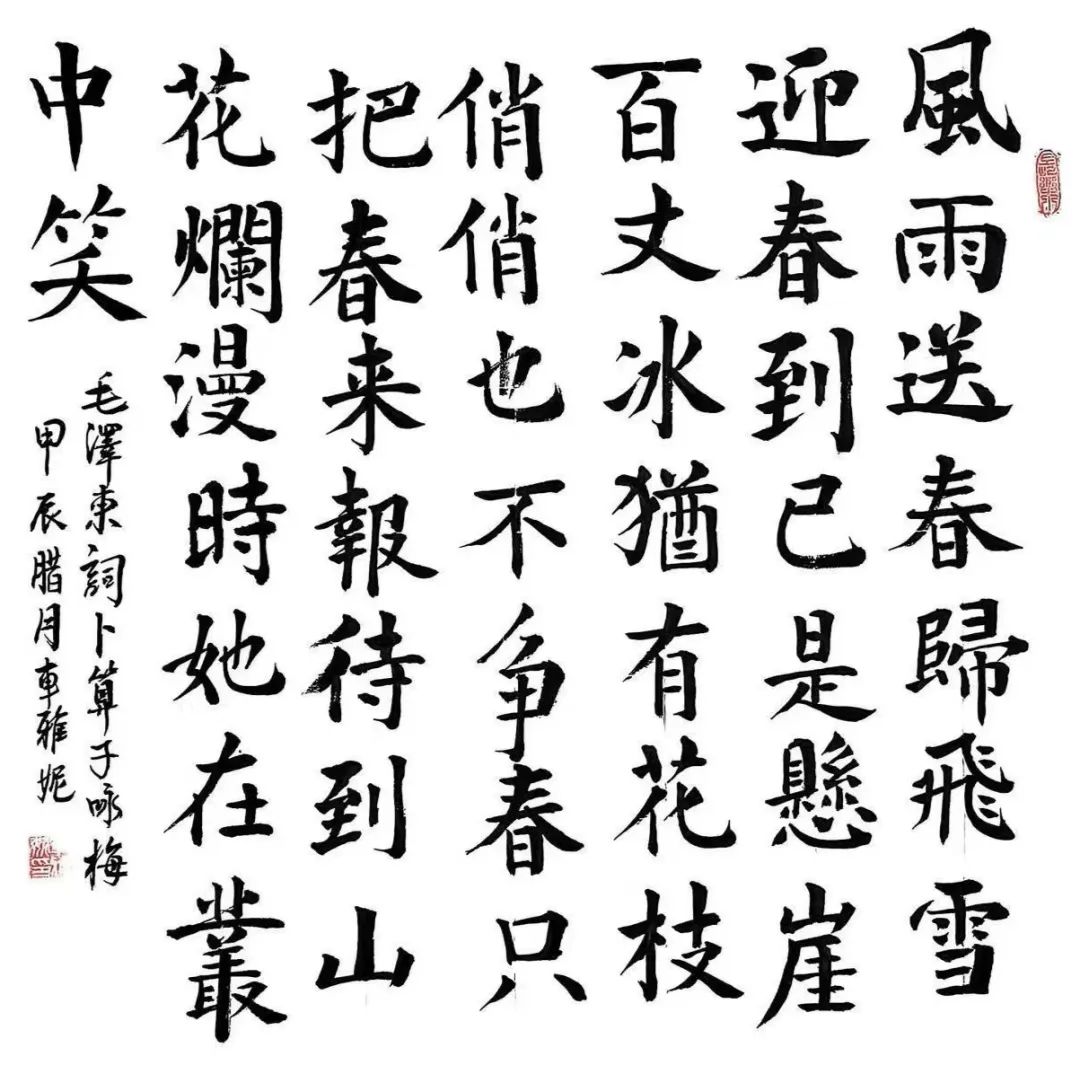 風雨送春歸飛雪
迎春到已是懸崖
百丈冰猶有花枝
俏俏也不争春只
把春来報待到山
花爛漫時她在叢
中笑
毛澤東詞卜算子咏梅
甲辰腊月車雅妮